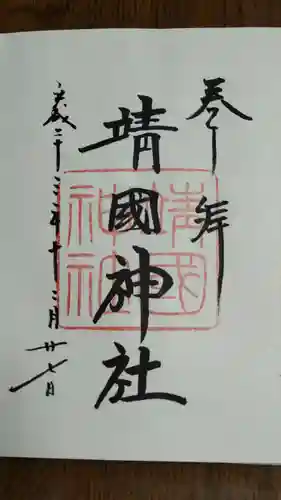 奉拝
靖國神社
平成二十三年十二月廿七日
靖國
神社